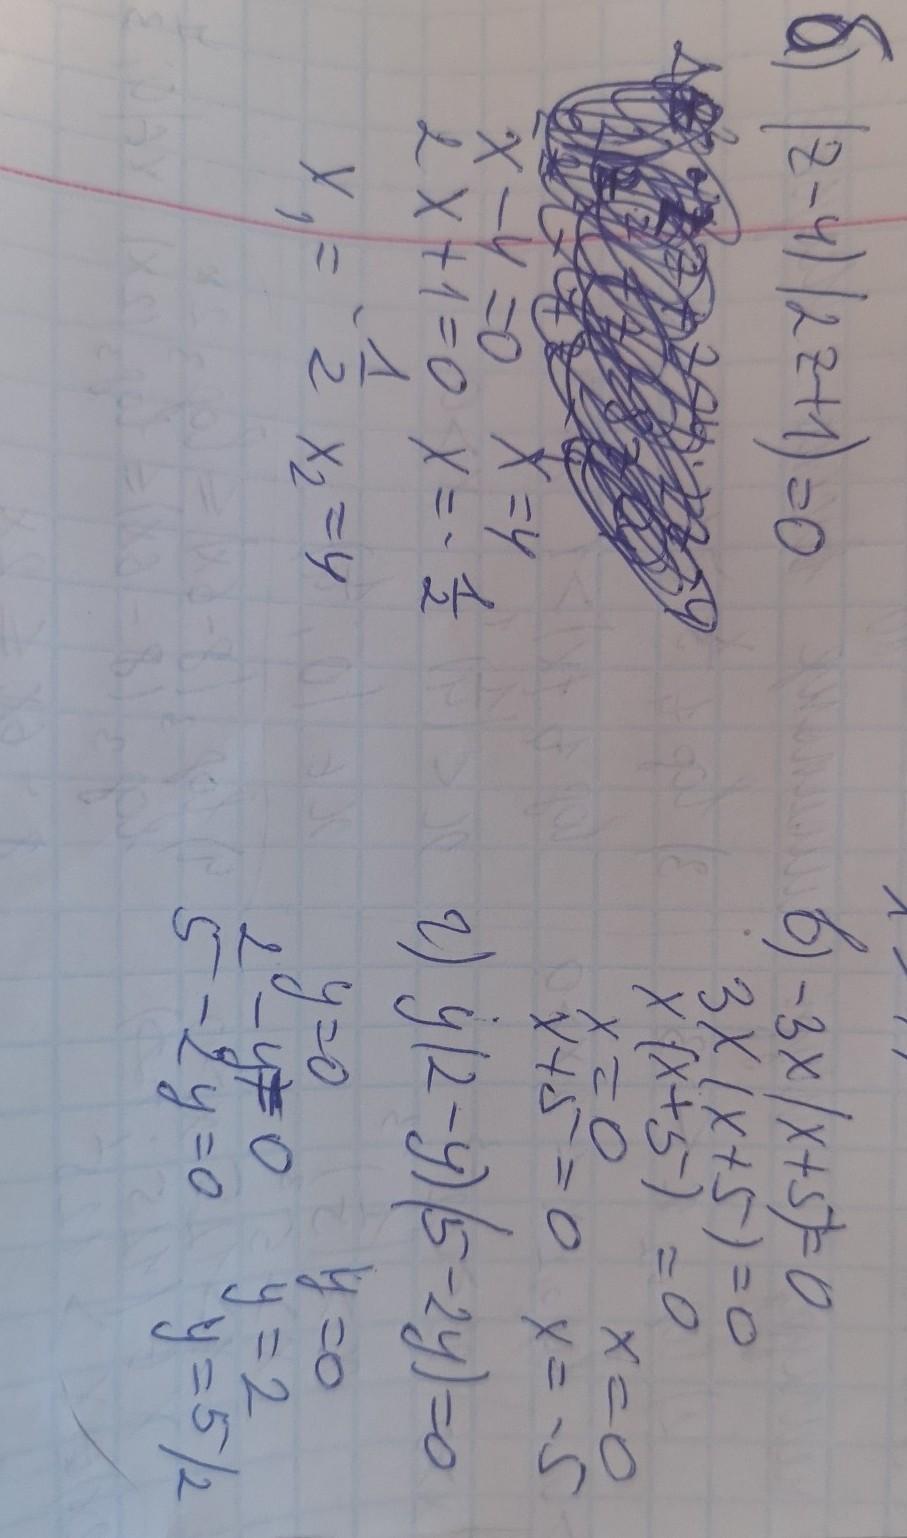 б) (z-4)(2z+1)=0
x-4=0 x=4
2x+1=0 x=-1/2
x₁=-1/2 x₂=4
в) -3x(x+5)=0
3x(x+5)=0
x(x+5)=0
x=0 x=0
x+5=0 x=-5
г) y(2-y)(5-2y)=0
y=0 y=0
2-y=0 y=2
5-2y=0 y=5/2